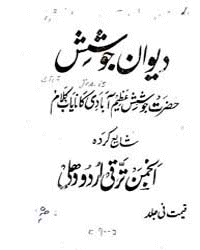 دیوان جوشش
حضرت جوشش عظیم آبادی کا نایاب کلام
شایع کردہ
انجمن ترقی اردو دہلی
قیمت فی جلد